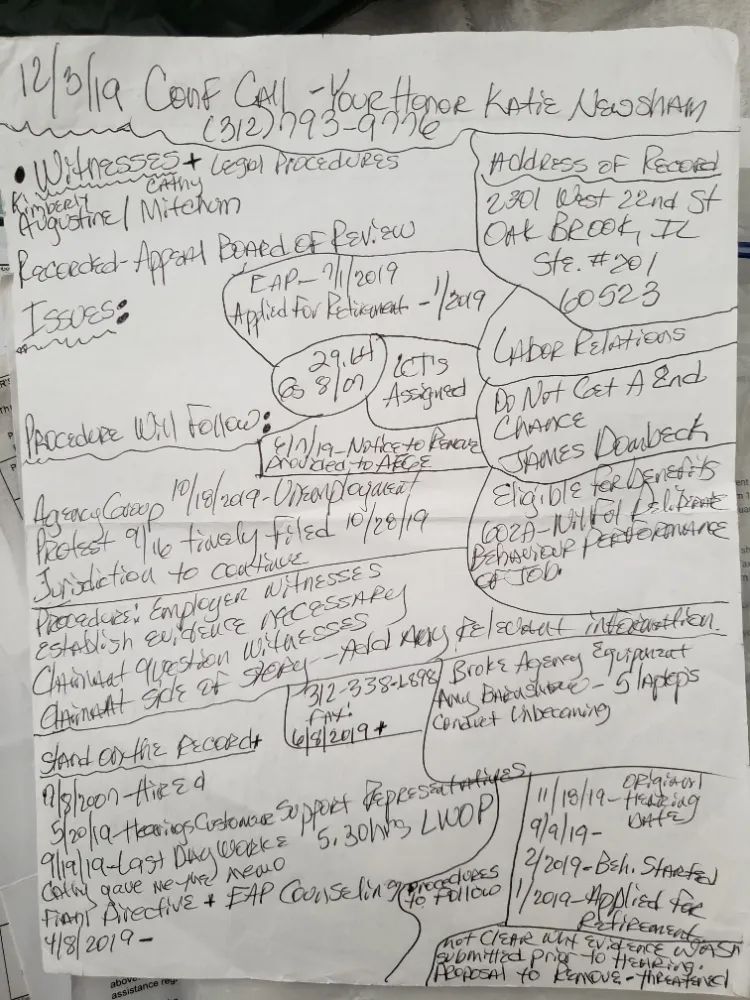 12/3/19 Conf Call - Your Honor Katie Newsham
(312) 793-9776
• Witnesses + Legal Procedures
Kimberly Cathy
Augustine / Mitchum
Recorded - Appeal Board of Review
Issues:
EAP - 7/1/2019
Applied for Retirement - 1/2019
29.64
as 8/07
LCT's
Assigned
Address of Record
2301 West 22nd St
Oak Brook, IL
Ste. #201
60523
Labor Relations
Do Not Get A 2nd
Chance
James Dombeck
Procedure Will Follow:
Notice to Remove
Provided to AFGE
Agency Group 10/18/2019 - Unemployment
Protest 9/16 timely filed 10/28/19
Jurisdiction to continue
Eligible for benefits
602A - Willful Deliberate
Behaviour Performance
of Job.
Procedure: Employer Witnesses
Establish Evidence necessary
Claimant Question Witnesses
Claimant side of story -- Add Any Relevant information.
312-338-1898
Fax:
6/8/2019 +
Broke Agency Equipment
- 5 laptops
Conduct Unbecoming
Stand on the Record +
/8/2007 - Hired
5/20/19 - Hearings Customer Support Representatives
9/19/19 - Last Day Worke 5.30 hrs LWOP
Cathy gave me the memo
Final Directive + EAP Counseling procedures
to follow
4/8/2019 -
11/18/19 - Original
Hearing
Date
9/9/19 -
2/2019 - Beh. Started
1/2019 - Applied for
Retirement
not clear what evidence was
submitted prior to hearing.
Proposal to Remove - threatened
above
assistance reg